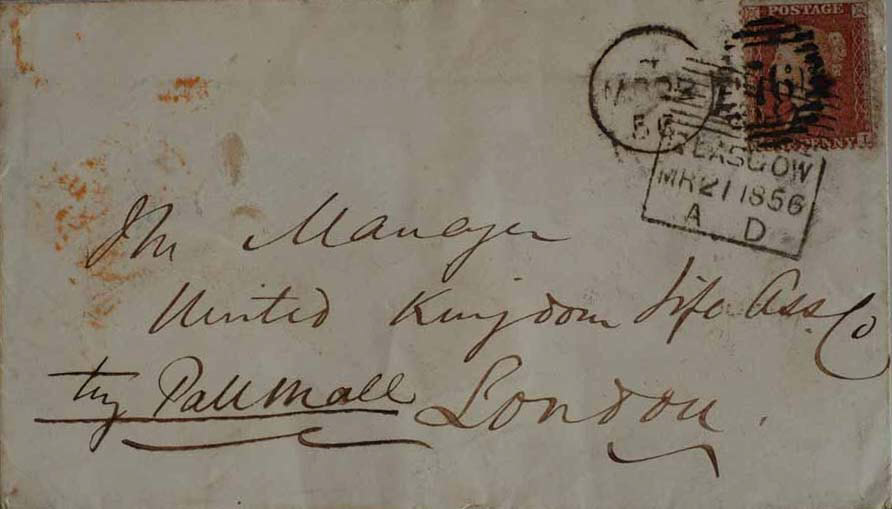 POSTAGE
46
56
GLASGOW
MR 21 1856
A D
The Manager
United Kingdom Life Ass. Co
try Pall Mall London.